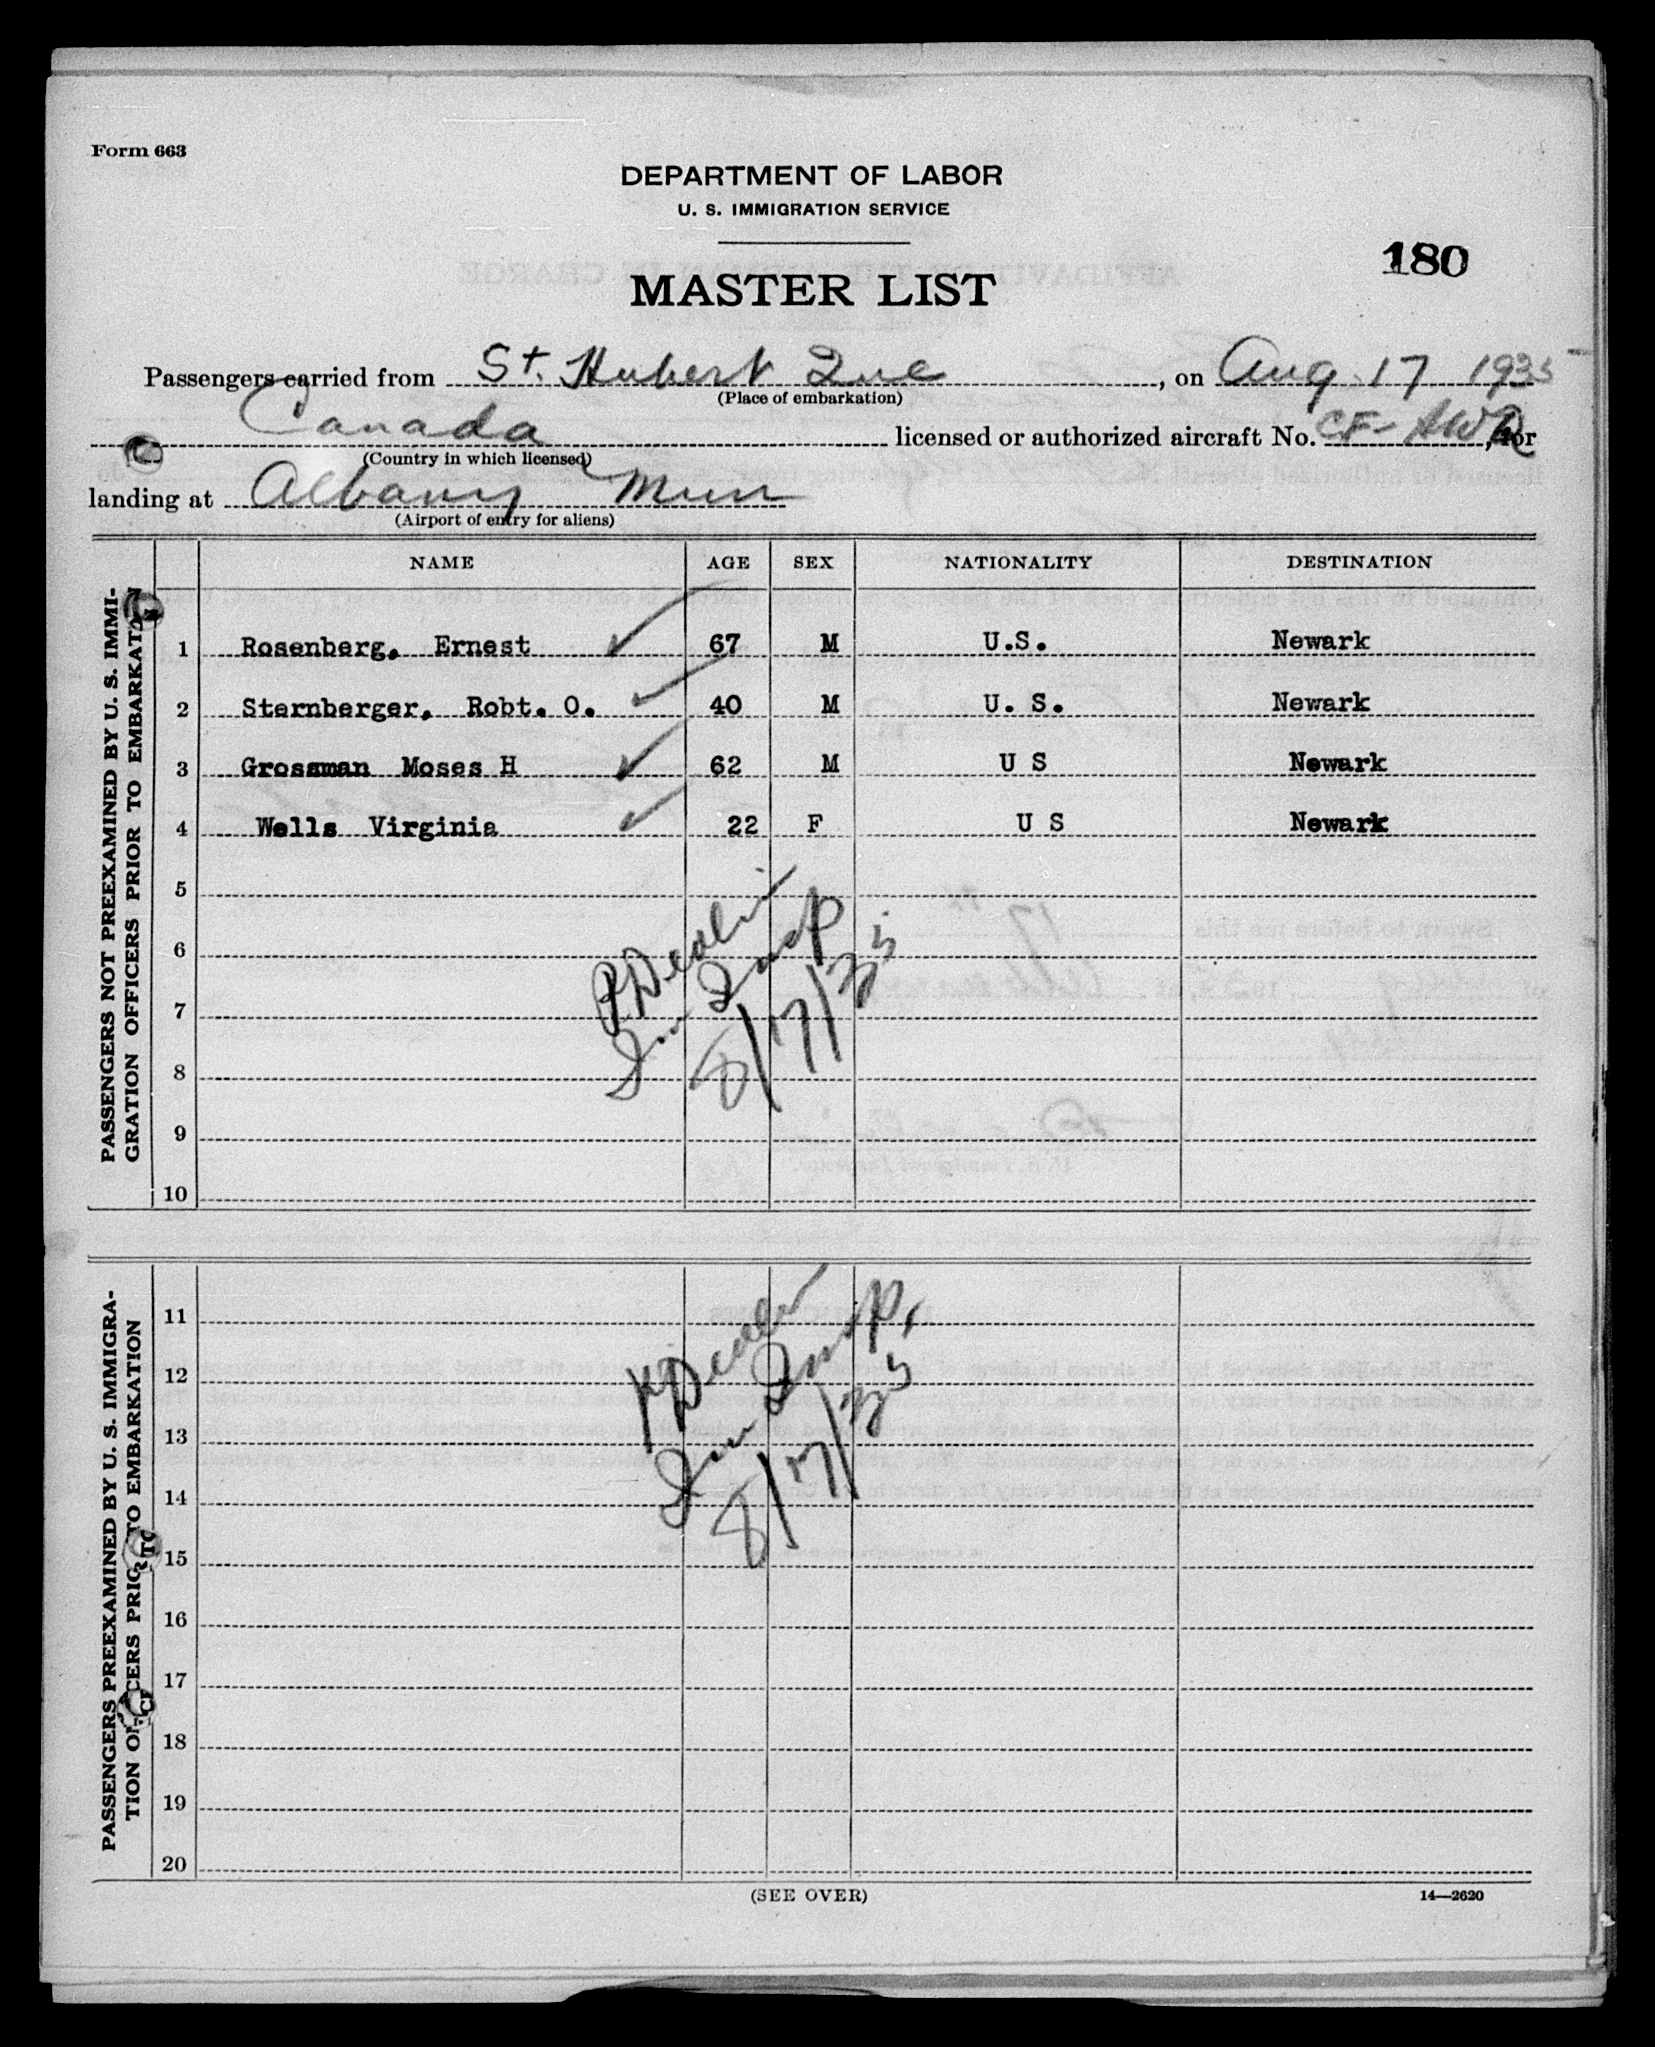 Form 663
DEPARTMENT OF LABOR
U. S. IMMIGRATION SERVICE
180
MASTER LIST
Passengers carried from St. Hubert Que, on Aug 17 1935
(Place of embarkation)
Canada licensed or authorized aircraft No. CF-AWR, for
(Country in which licensed)
landing at Albany Mun
(Airport of entry for aliens)
NAME AGE SEX NATIONALITY DESTINATION
PASSENGERS NOT PREEXAMINED BY U. S. IMMI-
GRATION OFFICERS PRIOR TO EMBARKATION
1 Rosenberg, Ernest 67 M U.S. Newark
2 Sternberger, Robt. O. 40 M U. S. Newark
3 Grossman Moses H 62 M U S Newark
4 Wells Virginia 22 F U S Newark
5
6
7
8
9
10
Imm Insp
8/17/35
PASSENGERS PREEXAMINED BY U. S. IMMIGRA-
TION OFFICERS PRIOR TO EMBARKATION
11
12
13
14
15
16
17
18
19
20
Imm Insp.
8/17/35
(SEE OVER)
14—2620